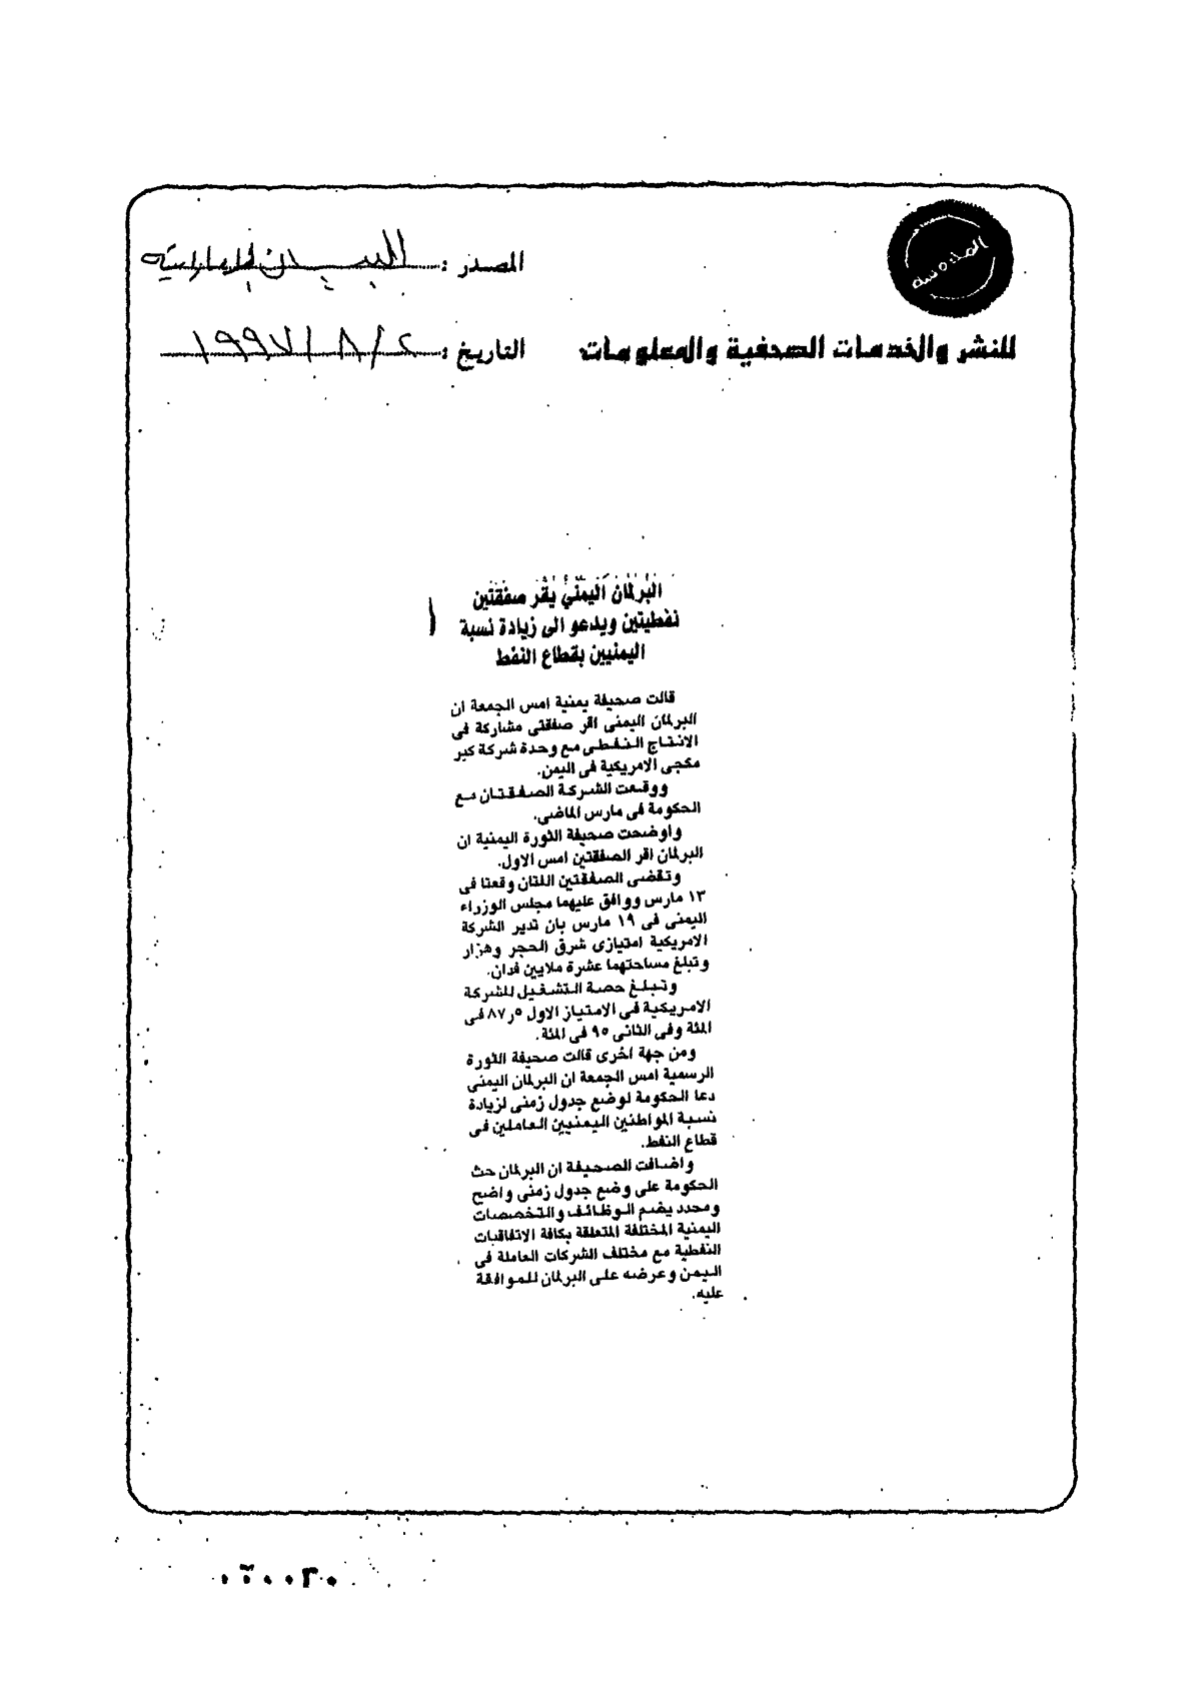 المصدر : البيان الإماراتيه
للنشر والخدمات الصحفية والمعلومات
التاريخ : ٢ / ٨ / ١٩٩٧
البرلمان اليمني يقر صفقتين
نفطيتين ويدعو الى زيادة نسبة
اليمنيين بقطاع النفط
قالت صحيفة يمنية امس الجمعة ان
البرلمان اليمنى اقر صفقتى مشاركة فى
الانتاج النفطى مع وحدة شركة كير
مكجى الامريكية فى اليمن.
ووقعت الشركة الصفقتان مع
الحكومة فى مارس الماضى.
واوضحت صحيفة الثورة اليمنية ان
البرلمان اقر الصفقتين امس الاول.
وتقضى الصفقتين اللتان وقعتا فى
١٣ مارس ووافق عليهما مجلس الوزراء
اليمنى فى ١٩ مارس بان تدير الشركة
الامريكية امتيازى شرق الحجر وهزار
وتبلغ مساحتهما عشرة ملايين فدان.
وتبلغ حصة التشغيل للشركة
الامريكية فى الامتياز الاول ٥ر٨٧ فى
المئة وفى الثانى ٩٥ فى المئة.
ومن جهة اخرى قالت صحيفة الثورة
الرسمية امس الجمعة ان البرلمان اليمنى
دعا الحكومة لوضع جدول زمنى لزيادة
نسبة المواطنين اليمنيين العاملين فى
قطاع النفط.
واضافت الصحيفة ان البرلمان حث
الحكومة على وضع جدول زمنى واضح
ومحدد يضم الوظائف والتخصصات
اليمنية المختلفة المتعلقة بكافة الاتفاقيات
النفطية مع مختلف الشركات العاملة فى
اليمن وعرضه على البرلمان للموافقة
عليه.